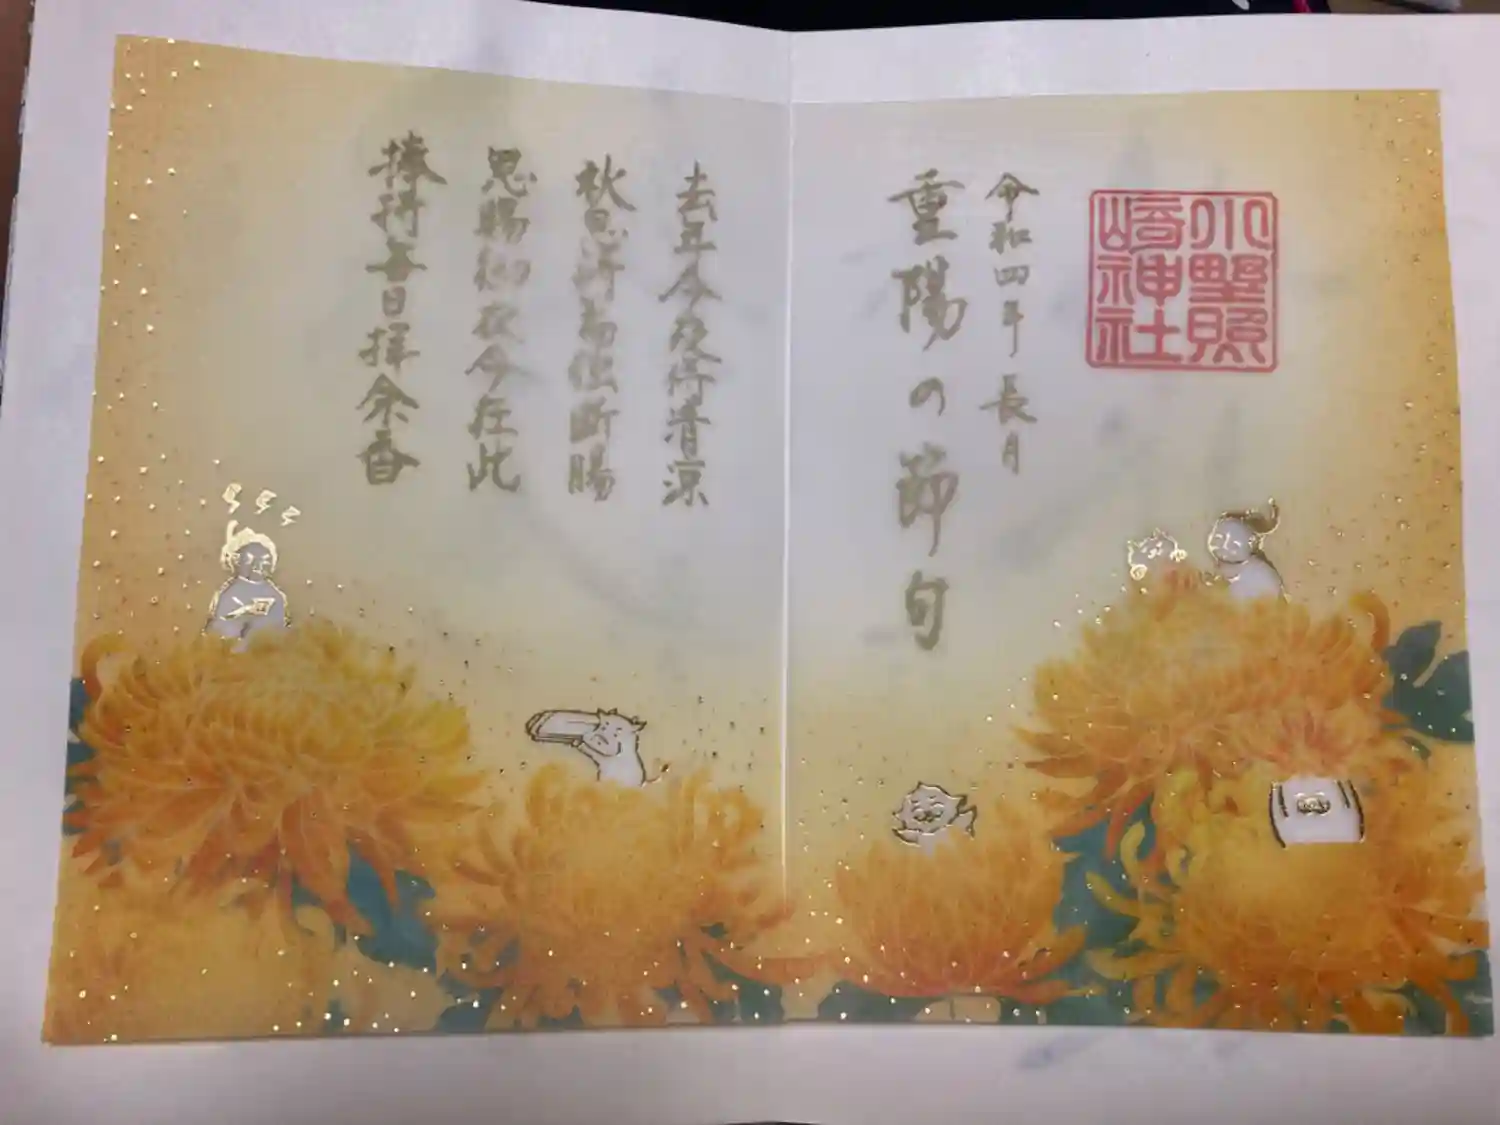 小野照
崎神社
令和四年 長月
重陽の節句
去年今夜侍清涼
秋思詩篇獨断腸
恩賜御衣今在此
捧持毎日拝余香